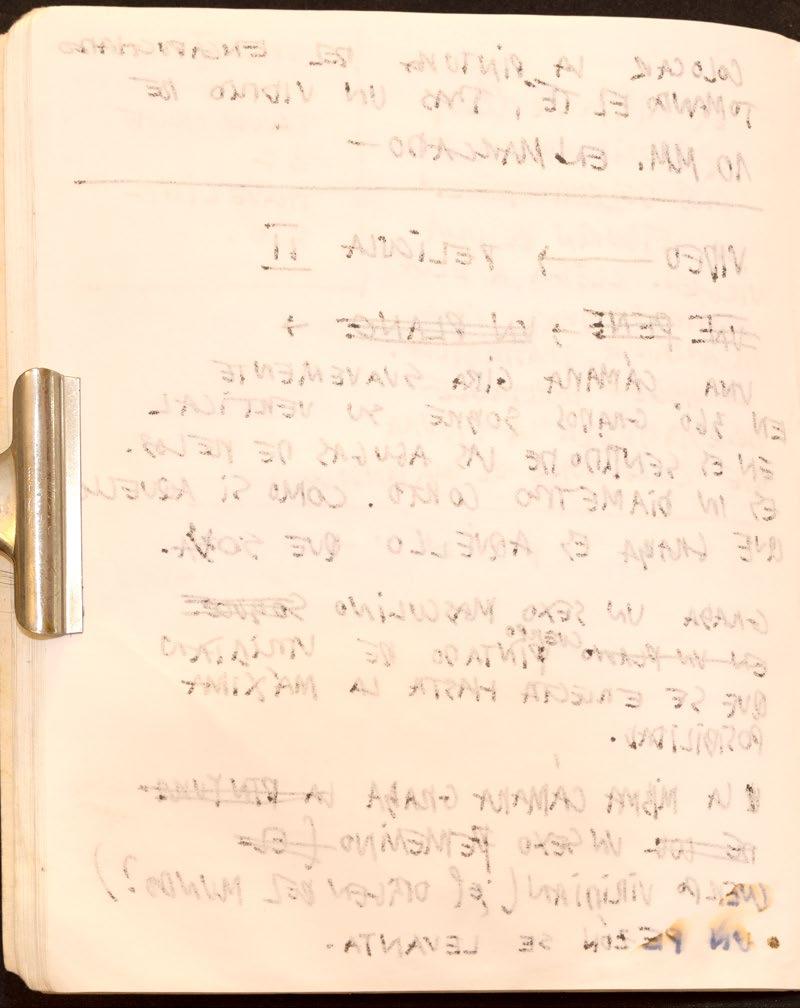 COLOCAR LA PINTURA DEL ENCAPUCHADO
TOMANDO EL TÉ, TRAS UN VIDRIO DE
10 MM. ENMARCADO —
VIDEO PELÍCULA II
PENE, UN PLANO +
UNA CÁMARA GIRA SUAVEMENTE
EN 360° GRADOS SOBRE SU VERTICAL
EN ES SENTIDO DE LAS AGUGAS DE RELOJ.
ES IN DIAMETRO CORTO. COMO SI AQUELLO
QUE GRABA ES AQUELLO QUE
GRABA UN SEXO MASCULINO SOBRE
EN UN PLANO CUERPO PINTADO DE
QUE SE ERECTA HASTA LA MÁXIMA
POSIBILIDAD.
LA MISMA CÁMARA GRABA LA PINTURA
DE UN SEXO FEMENINO (EL
VIRIDIAN (¿el ORIGEN DEL MUNDO?)
• UN PEZÓN SE LEVANTA.